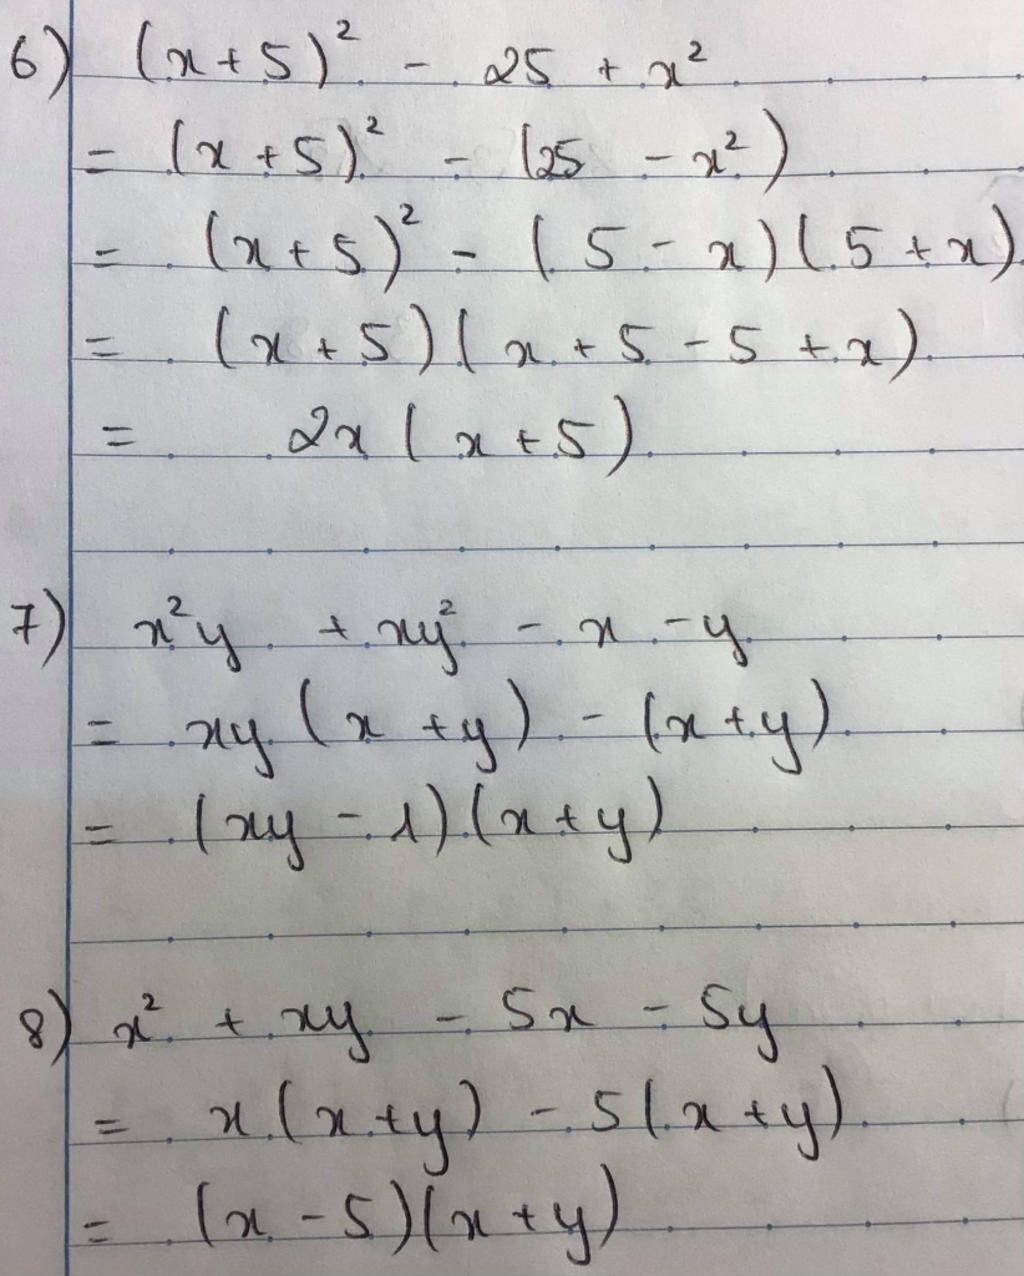 6) (x+5)² - 25 + x²
= (x+5)² - (25 - x²)
= (x+5)² - (5 - x)(5 + x)
= (x+5)(x+5-5+x)
= 2x(x+5)
7) x²y + xy² - x - y
= xy(x+y) - (x+y)
= (xy-1)(x+y)
8) x² + xy - 5x - 5y
= x(x+y) - 5(x+y)
= (x-5)(x+y)